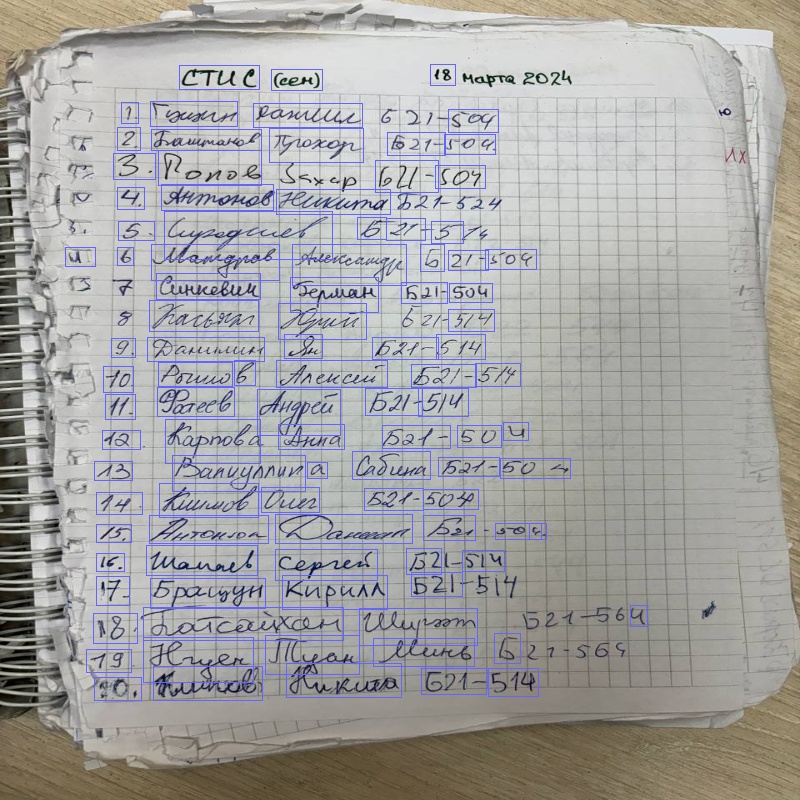 СТИС (сем) 18 марта 2024
1. Даниил Б21-504
2. Башманов Прохор Б21-504
3. Попов Захар Б21-504
4. Антонов Никита Б21-524
5. Б21-514
6 Александр Б21-504
7 Синкевич Герман Б21-504
8 Касьян Юрий Б21-514
9. Данилин Ян Б21-514
10. Алексей Б21-514
11. Фатеев Андрей Б21-514
12. Карпова Анна Б21-504
13 Валиуллина Сабина Б21-504
14. Климов Олег Б21-504
15. Б21-504
16. Шамаев Сергей Б21-514
17. Бращун Кирилл Б21-514
18. Батсайхан Б21-564
19 Нгуен Туан Минь Б21-564
20. Никита Б21-514